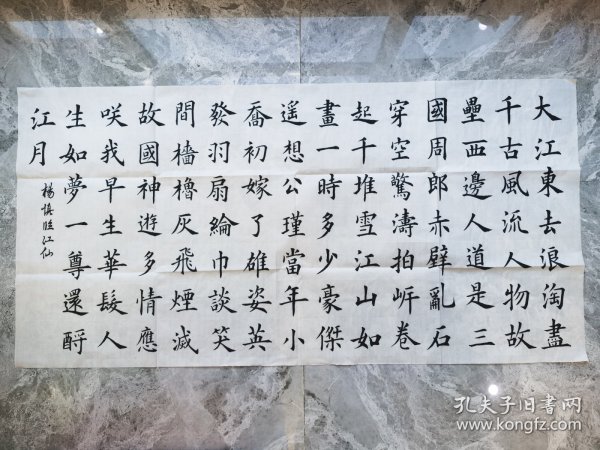 大江東去浪淘盡
千古風流人物故
壘西邊人道是三
國周郎赤壁亂石
穿空驚濤拍岍卷
起千堆雪江山如
畫一時多少豪傑
遥想公瑾當年小
喬初嫁了雄姿英
發羽扇綸巾談笑
間檣櫓灰飛煙滅
故國神遊多情應
咲我早生華髮人
生如夢一尊還酹
江月
楊慎臨江仙
孔夫子旧书网
www.kongfz.com